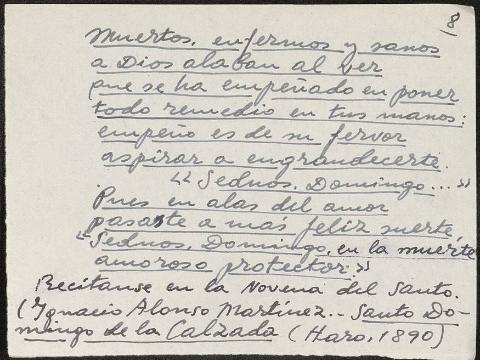 8
Muertos, enfermos y sanos
a Dios alaban al ver
que se ha empeñado en poner
todo remedio en tus manos:
empeño es de su fervor
aspirar a engrandecerte.
"Sednos, Domingo..."
Pues en alas del amor
pasaste a más feliz suerte,
"Sednos, Domingo, en la muerte
amoroso protector."
Recítanse en la Novena del Santo.
(Ignacio Alonso Martínez.- Santo Do-
mingo de la Calzada (Haro, 1890)